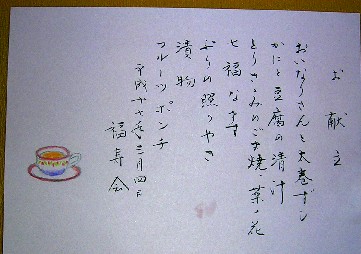 お献立
おいなりさんと太巻ずし
かにと豆腐の清汁
とりささみのごま焼、菜ノ花
七福なます
ぶりの照りやき
漬物
フルーツポンチ
平成十六年三月四日
福寿会